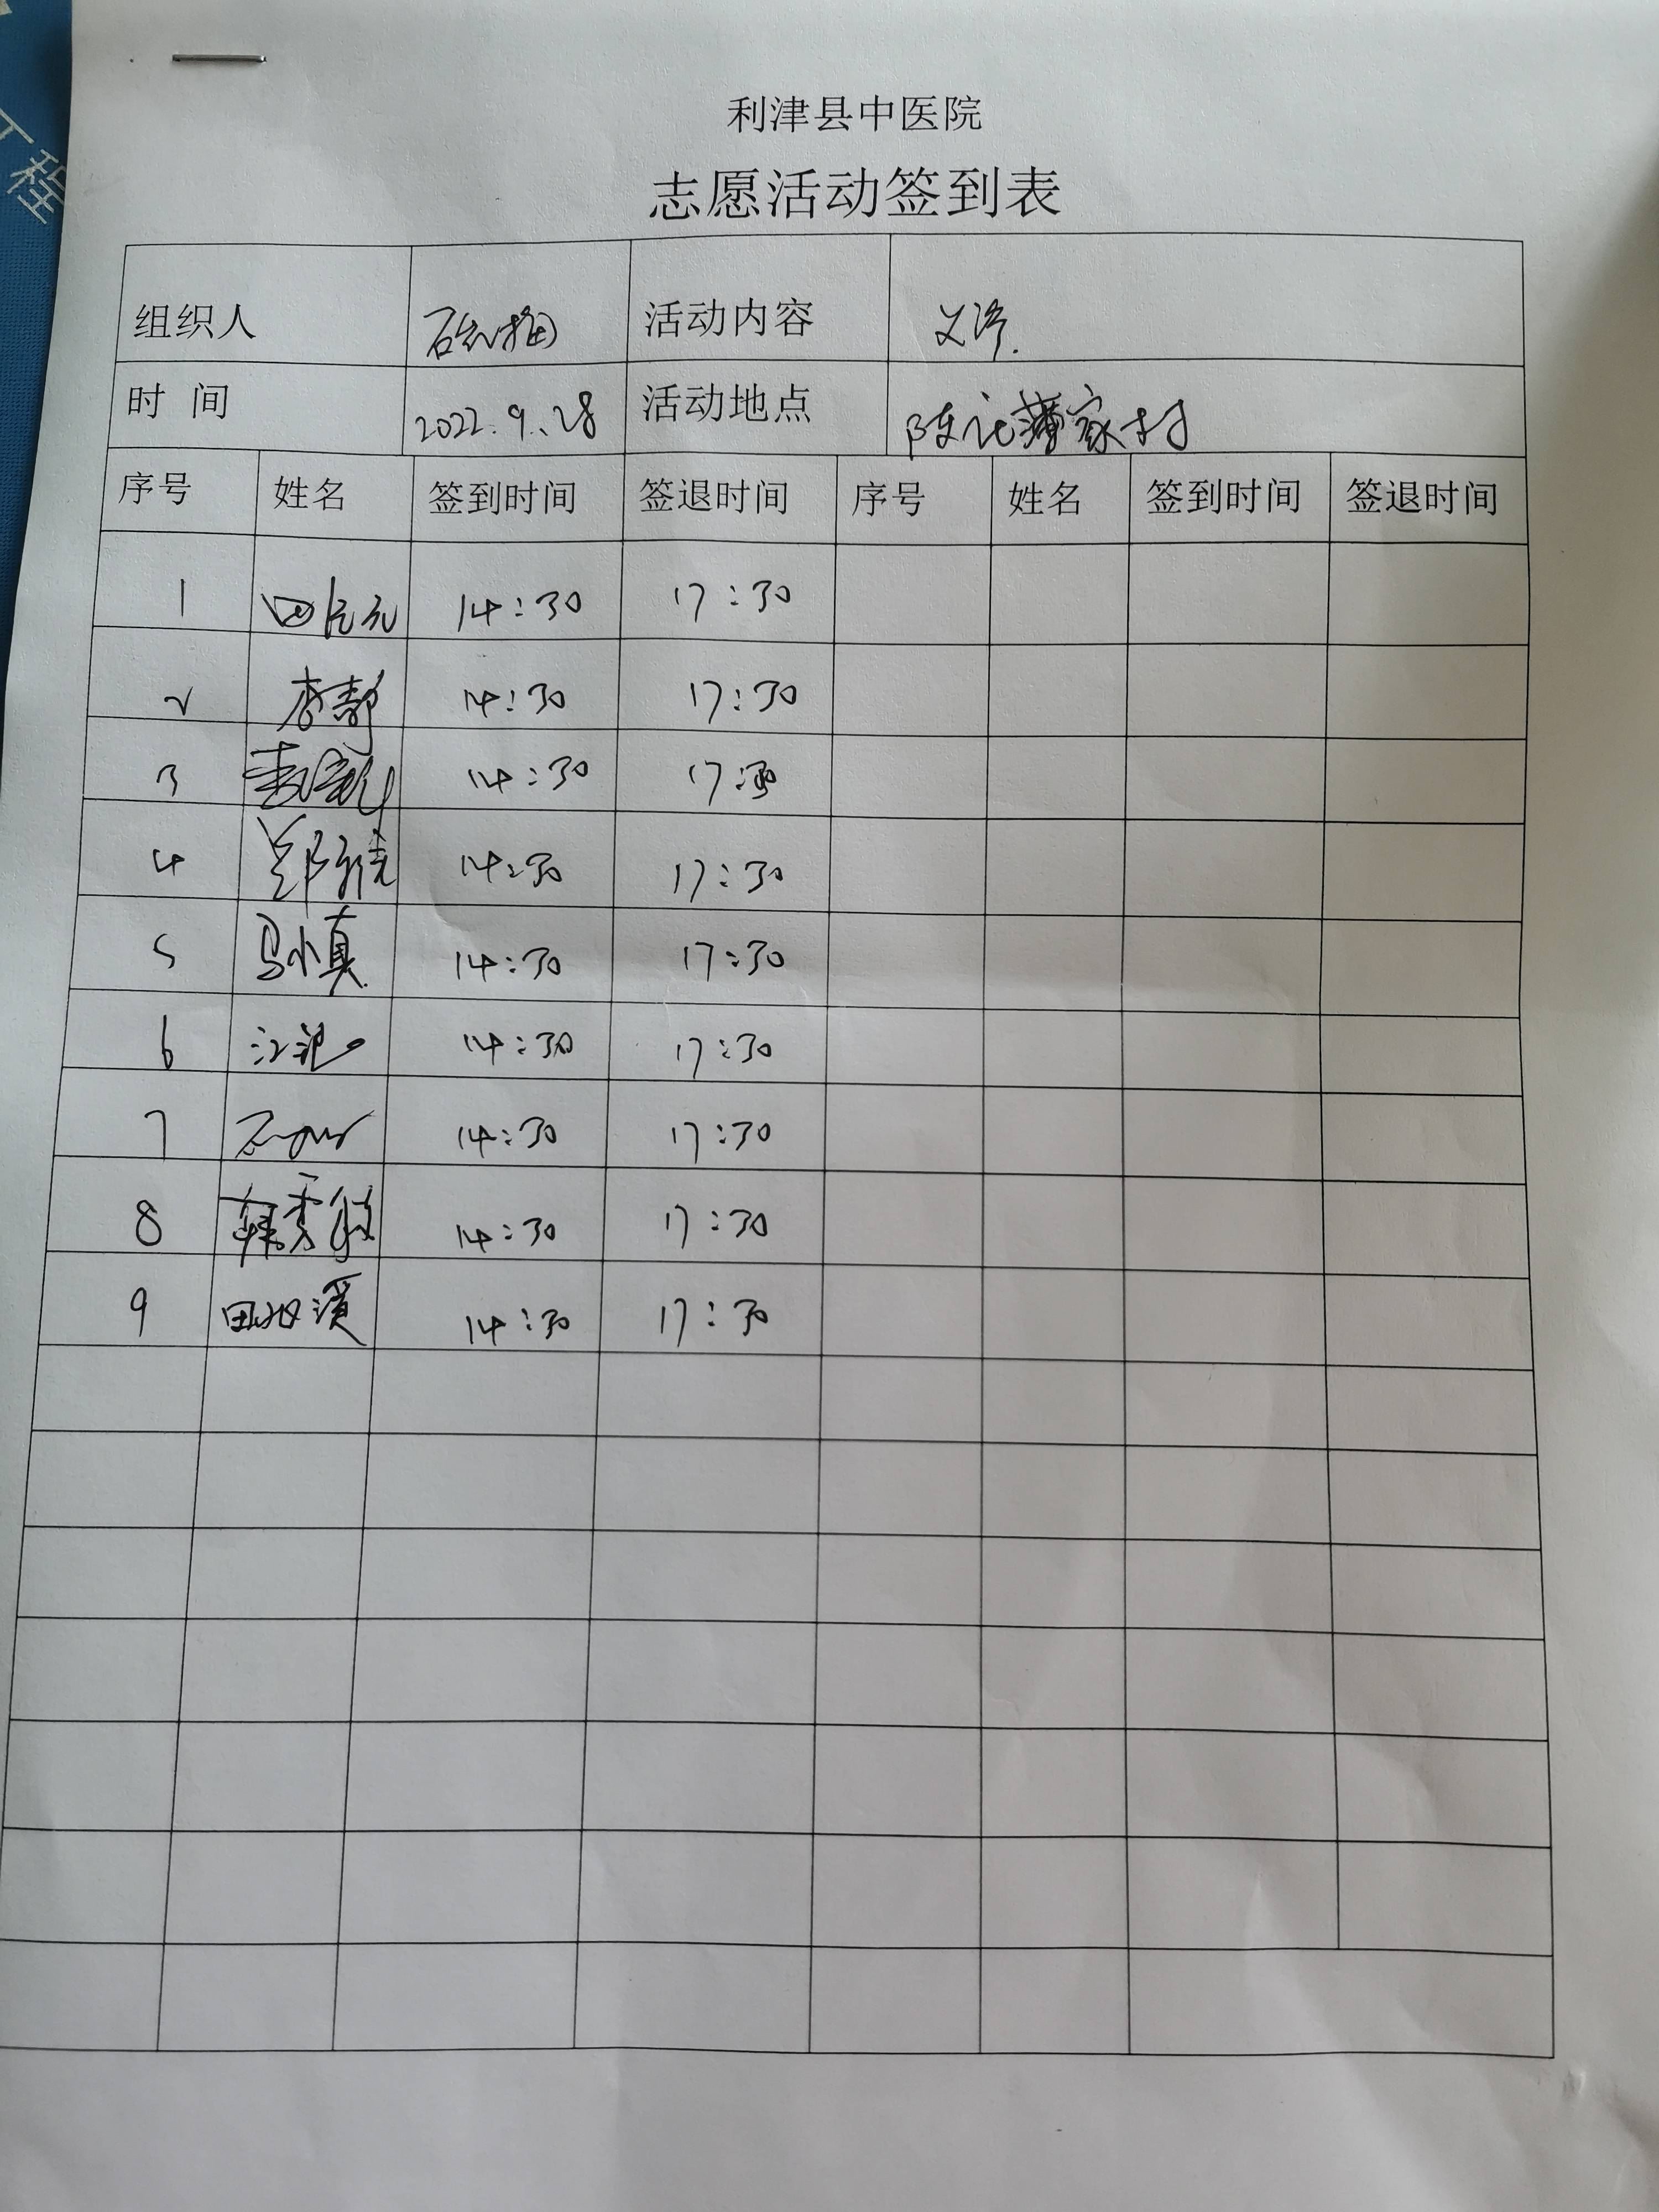 工程
利津县中医院
志愿活动签到表
组织人 活动内容 义诊.
时 间 2022.9.28 活动地点 陈庄薄家村
序号 姓名 签到时间 签退时间 序号 姓名 签到时间 签退时间
1 14:30 17:30
2 李静 14:30 17:30
3 14:30 17:30
4 14:30 17:30
5 马小真 14:30 17:30
6 14:30 17:30
7 14:30 17:30
8 韩秀敏 14:30 17:30
9 14:30 17:30